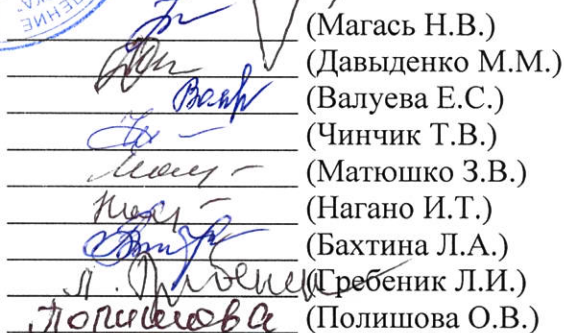 ЛЕНИЕ
(Магась Н.В.)
(Давыденко М.М.)
(Валуева Е.С.)
(Чинчик Т.В.)
(Матюшко З.В.)
(Нагано И.Т.)
(Бахтина Л.А.)
Л. Гребеник (Гребеник Л.И.)
Полишова (Полишова О.В.)